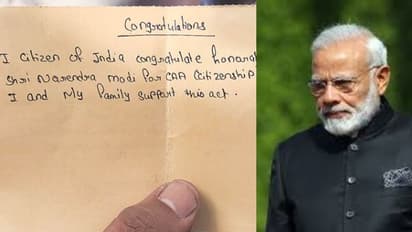 Congratulations
I citizen of India congratulate honorab
shri Narendra modi for CAA citizenship
I and My family support this act.